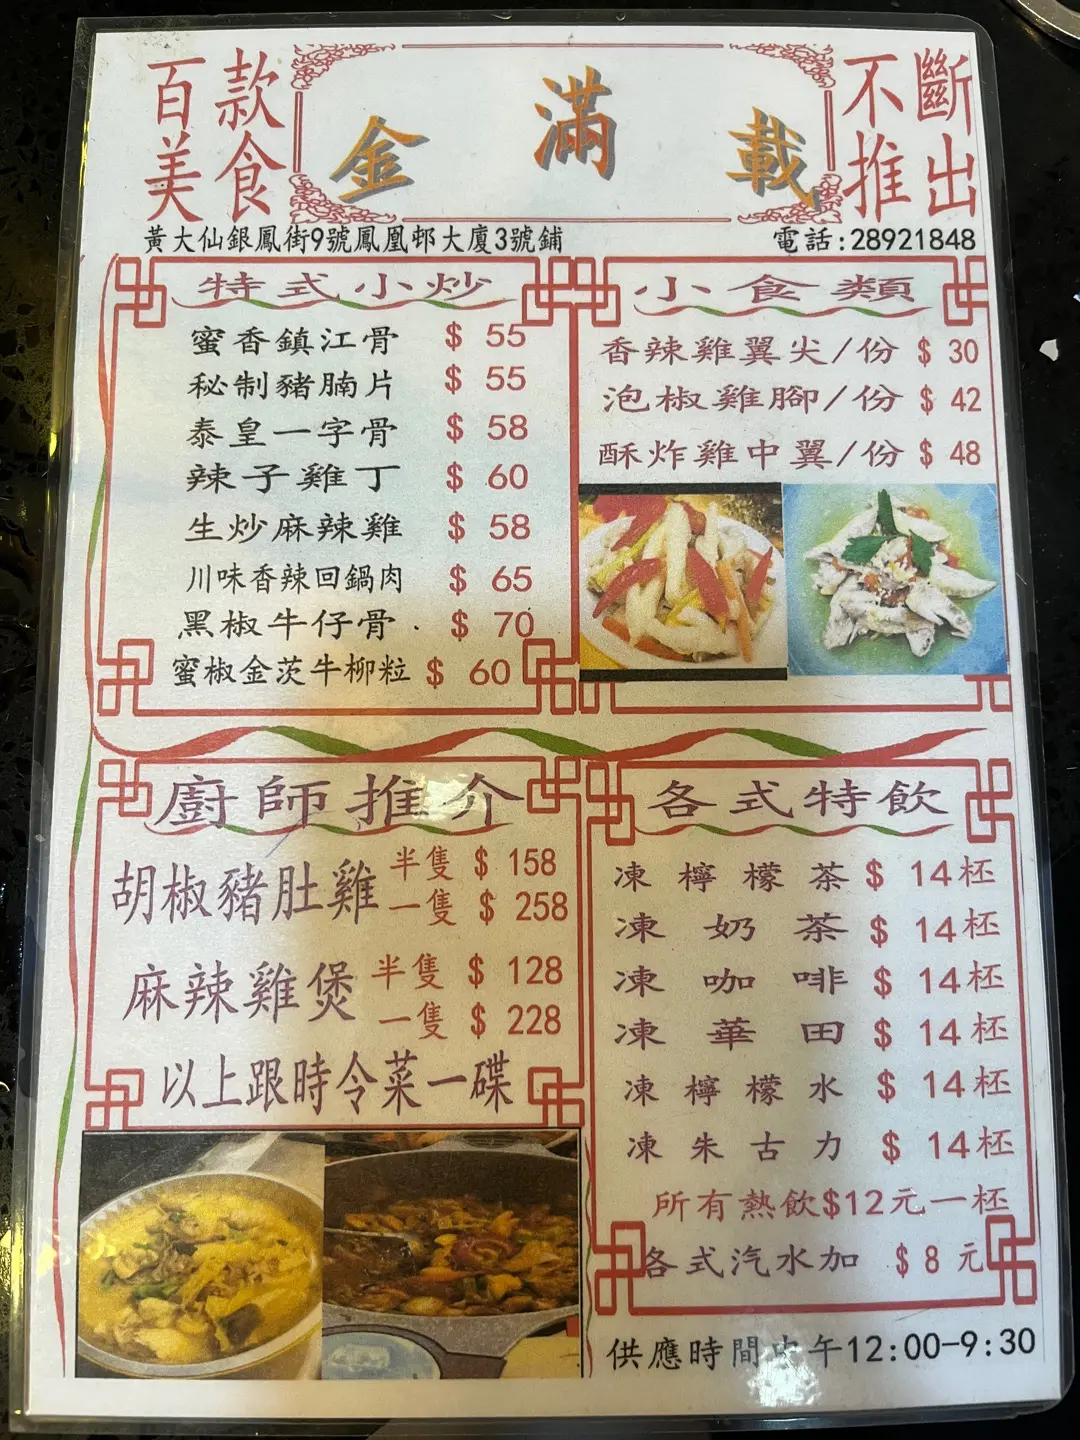 百款
美食
金滿載
不斷
推出
黃大仙銀鳳街9號鳳凰邨大廈3號鋪
電話:28921848
特式小炒
蜜香鎮江骨 $ 55
秘制豬腩片 $ 55
泰皇一字骨 $ 58
辣子雞丁 $ 60
生炒麻辣雞 $ 58
川味香辣回鍋肉 $ 65
黑椒牛仔骨 $ 70
蜜椒金茨牛柳粒 $ 60
小食類
香辣雞翼尖/份 $ 30
泡椒雞腳/份 $ 42
酥炸雞中翼/份 $ 48
廚師推介
胡椒豬肚雞 半隻 $ 158
一隻 $ 258
麻辣雞煲 半隻 $ 128
一隻 $ 228
以上跟時令菜一碟
各式特飲
凍檸檬茶 $ 14杯
凍奶茶 $ 14杯
凍咖啡 $ 14杯
凍華田 $ 14杯
凍檸檬水 $ 14杯
凍朱古力 $ 14杯
所有熱飲$12元一杯
各式汽水加 $ 8 元
供應時間中午12:00-9:30